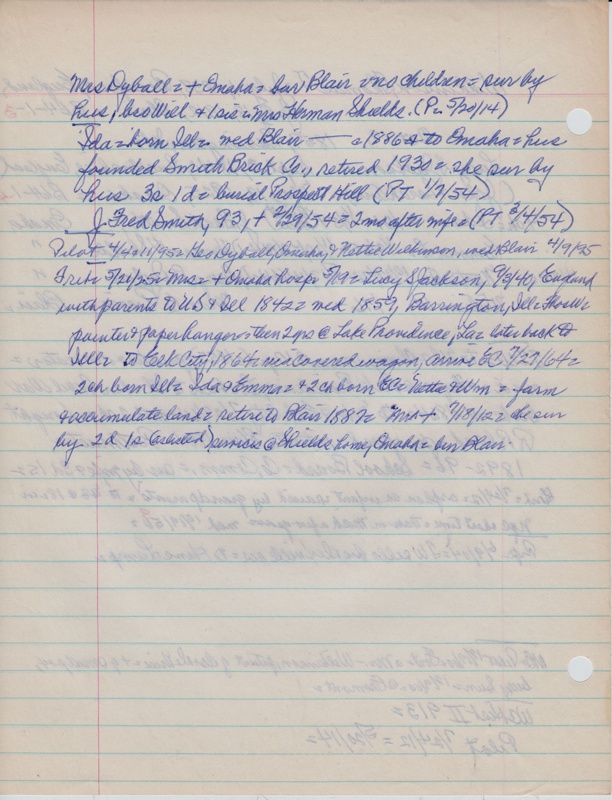 Mrs Dyball = + Omaha = bur Blair = no children = sur by
hus, bro Will & 1 sis = Mrs Herman Shields. (P = 5/20/14)
Ida = born Ill = med Blair — = 1886 to Omaha = hus
founded Smith Brick Co., retired 1930 = she sur by
hus 3s 1d = burial Prospect Hill (PT 1/7/54)
J. Fred Smith, 93, + 2/29/54 = 2 mo after wife = (PT 3/4/54)
Pilot 4/4 = Geo Dyball, Omaha, & Nettie Wilkinson, med Blair 4/9/95
Trib = 5/21/25 = Mrs = + Omaha hosp = 5/19 = Lucy S Jackson, England
with parents to US & Ill 1842 = med 1859, Barrington, Ill =
painter & paper hanger = then 2 yrs @ Lake Providence, La = later back to
Ill = to Elk City, 1864 = via covered wagon, arrive EC 7/27/64 =
2 ch born Ill = Ida & Emma = & 2 ch born EC = Nettie & Wm = farm
& accumulate land = retire to Blair 1887 = Mr + 7/18/12 = she sur
by 2d 1s (as listed) services @ Shields home, Omaha = bur Blair.